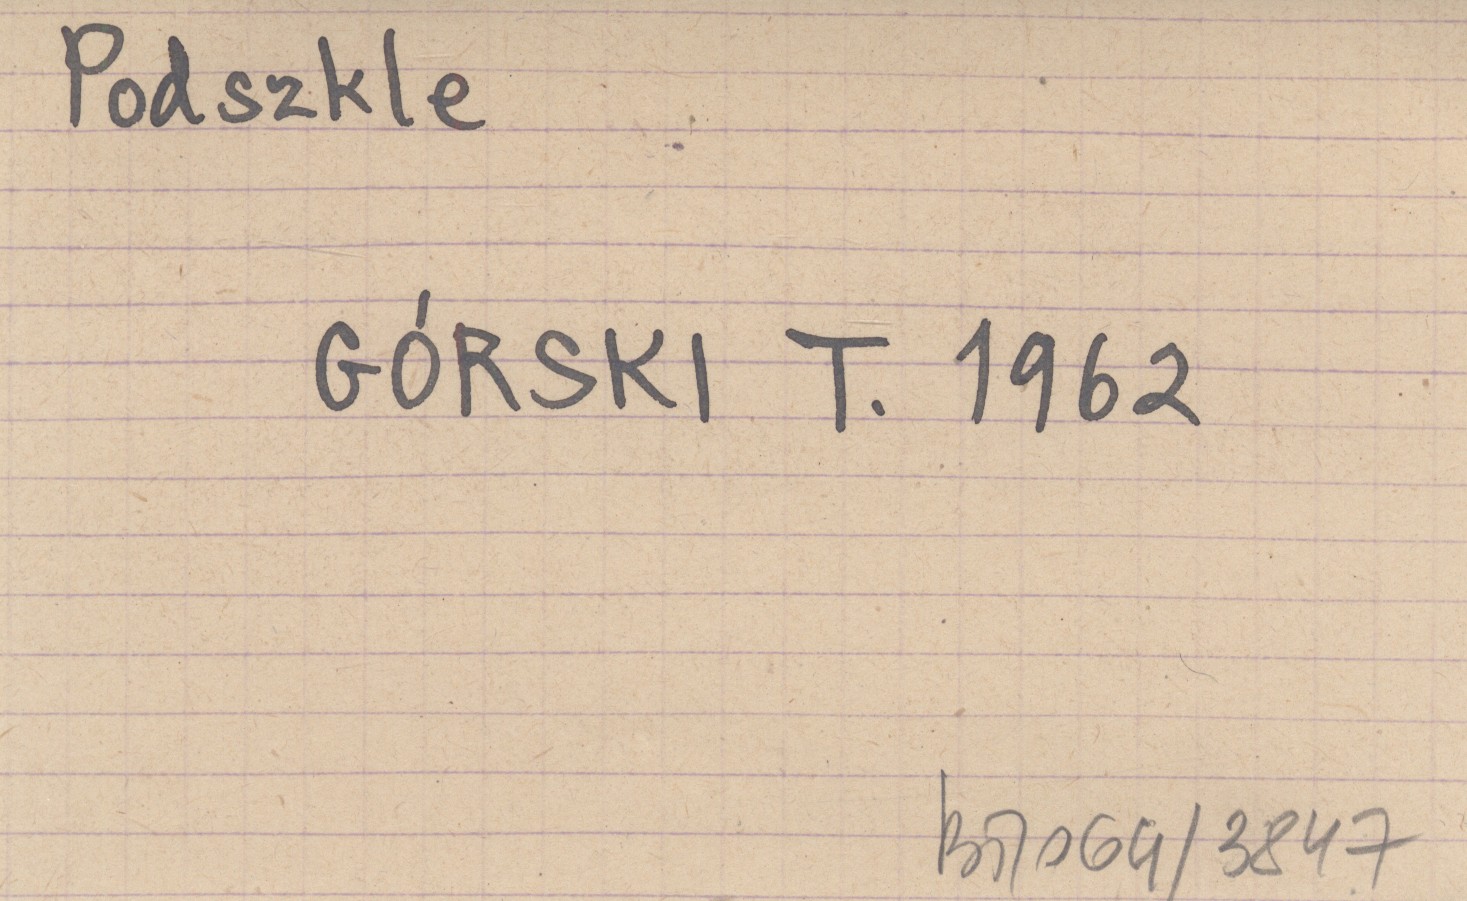 Podszkle
GÓRSKI T. 1962
/3847